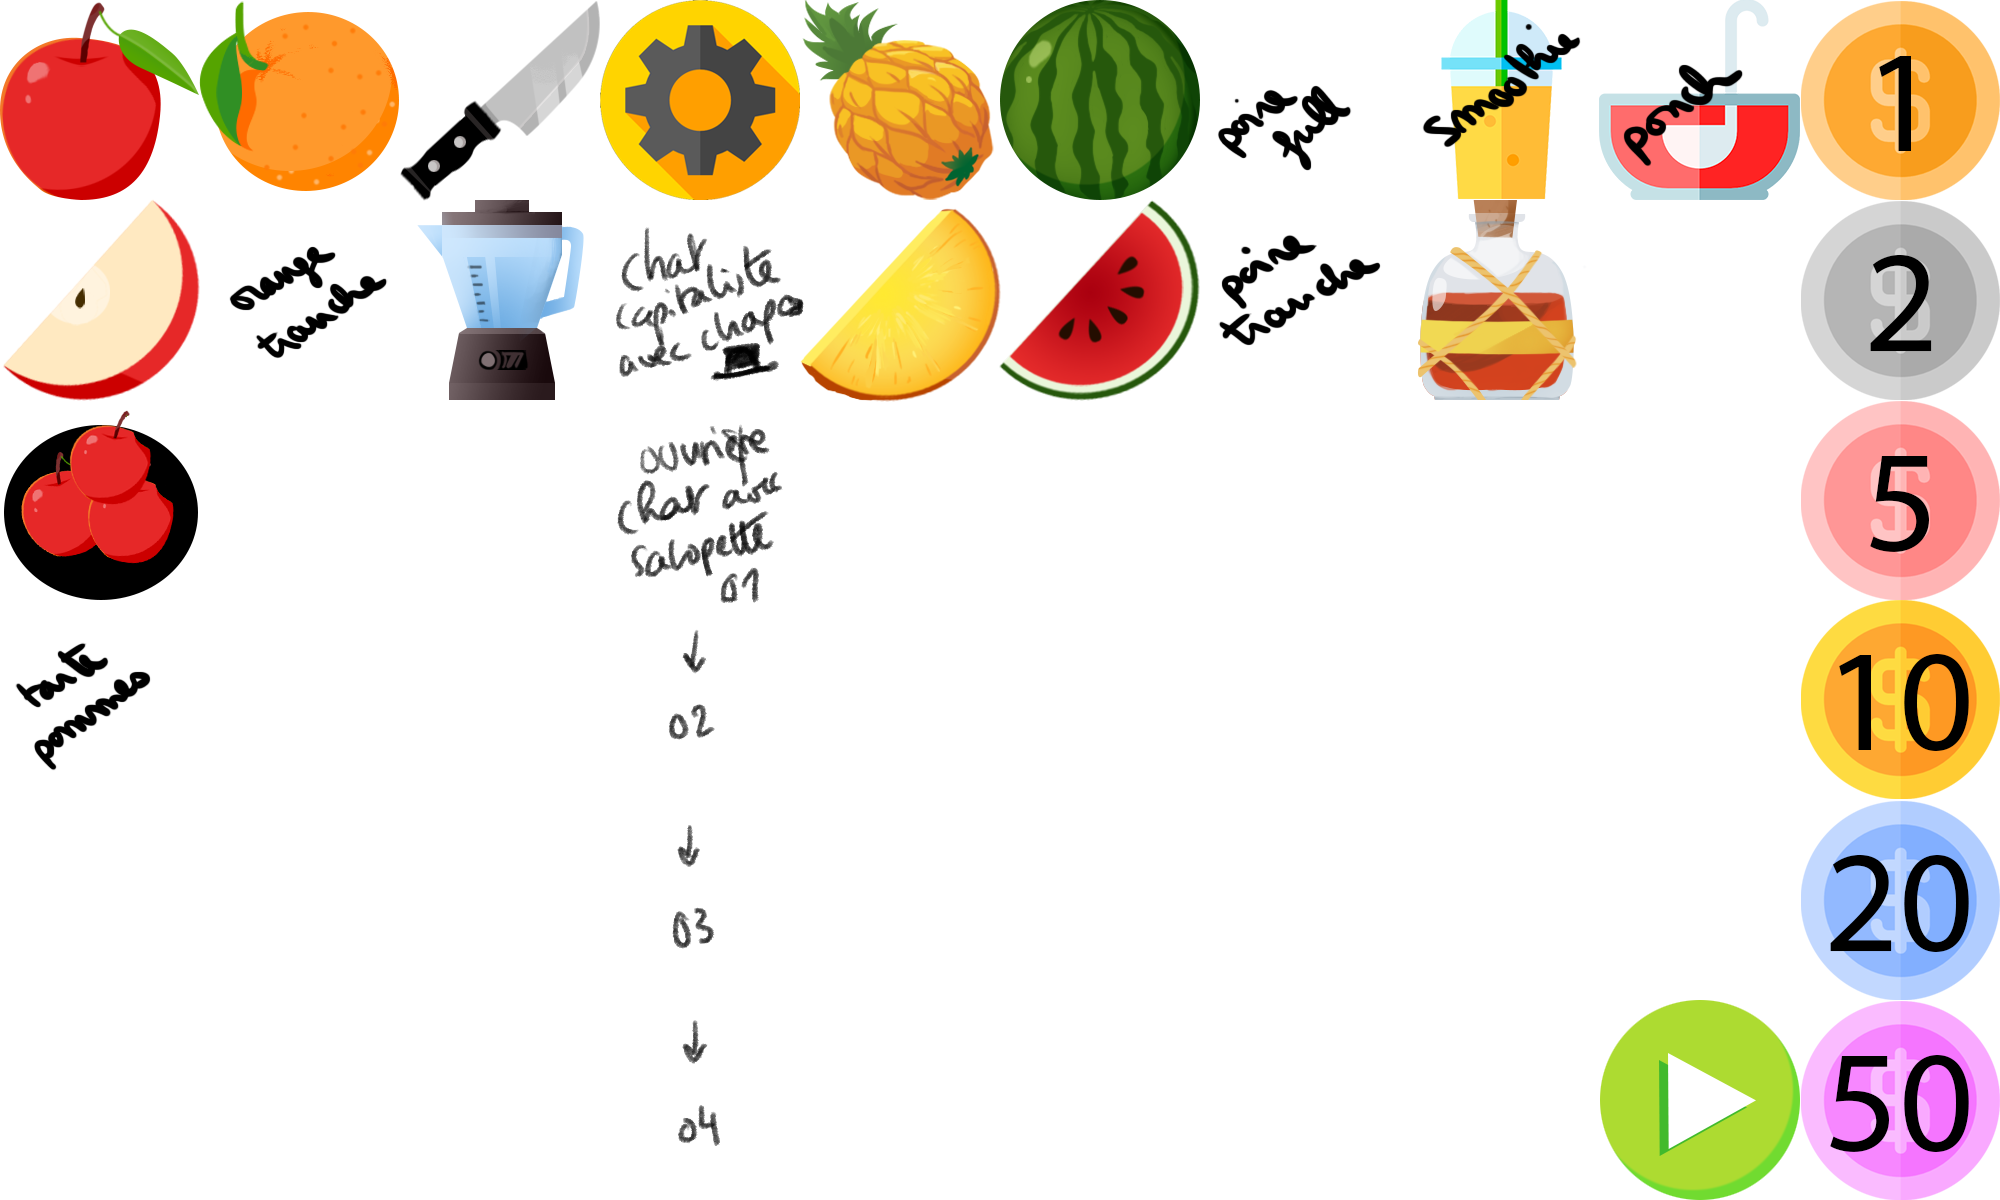 poire
full
Smoothie
ponch
1
orange
tranche
chat
capitaliste
avec chapo
poire
tranche
2
ouvrière
chat avec
salopette
01
5
tarte
pommes
02
10
03
20
04
50